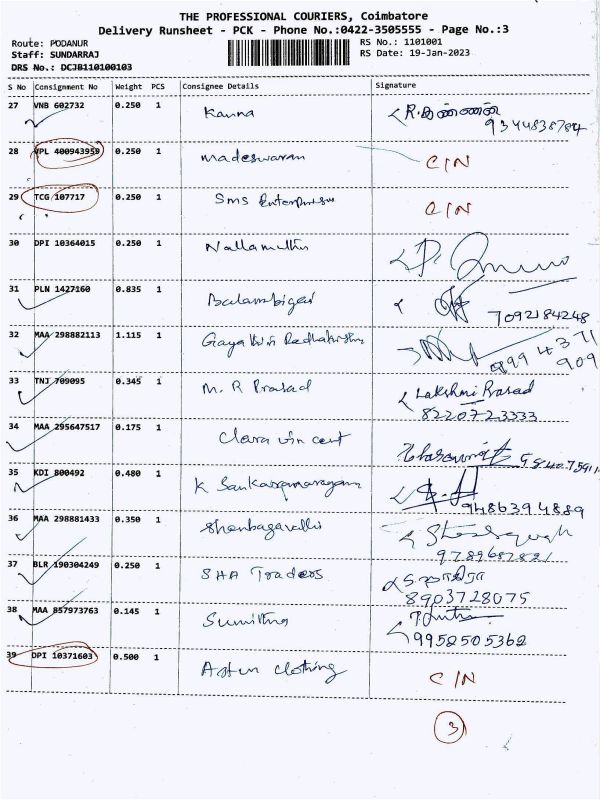 THE PROFESSIONAL COURIERS, Coimbatore
Delivery Runsheet - PCK - Phone No.:0422-3505555 - Page No.:3
Route: PODANUR RS No.: 1101001
Staff: SUNDARRAJ RS Date: 19-Jan-2023
DRS No.: DCJB110100103
S No Consignment No Weight PCS Consignee Details Signature
27 VNB 602732 0.250 1 Kanna R.கண்ணன்
9344838784
28 VPL 400943959 0.250 1 madeswaran C/N
29 TCG 107717 0.250 1 Sms Enterprises C/N
30 DPI 10364015 0.250 1 Nallamuthu
31 PLN 1427160 0.835 1 Balambigai
7092184248
32 MAA 298882113 1.115 1 Gayathiri Radhakrishnan
33 TNJ 709095 0.345 1 M. R Prasad Lakshmi Prasad
8220723333
34 MAA 295647517 0.175 1 Clara vin cent
35 KDI 800492 0.480 1 K Sankaranarayanan
9486394889
36 MAA 298881433 0.350 1 Shenbagavalli
37 BLR 190304249 0.250 1 SHA Traders
8903728075
38 MAA 857973763 0.145 1 Sumithra
9952505362
39 DPI 10371603 0.500 1 Clothing C/N
3